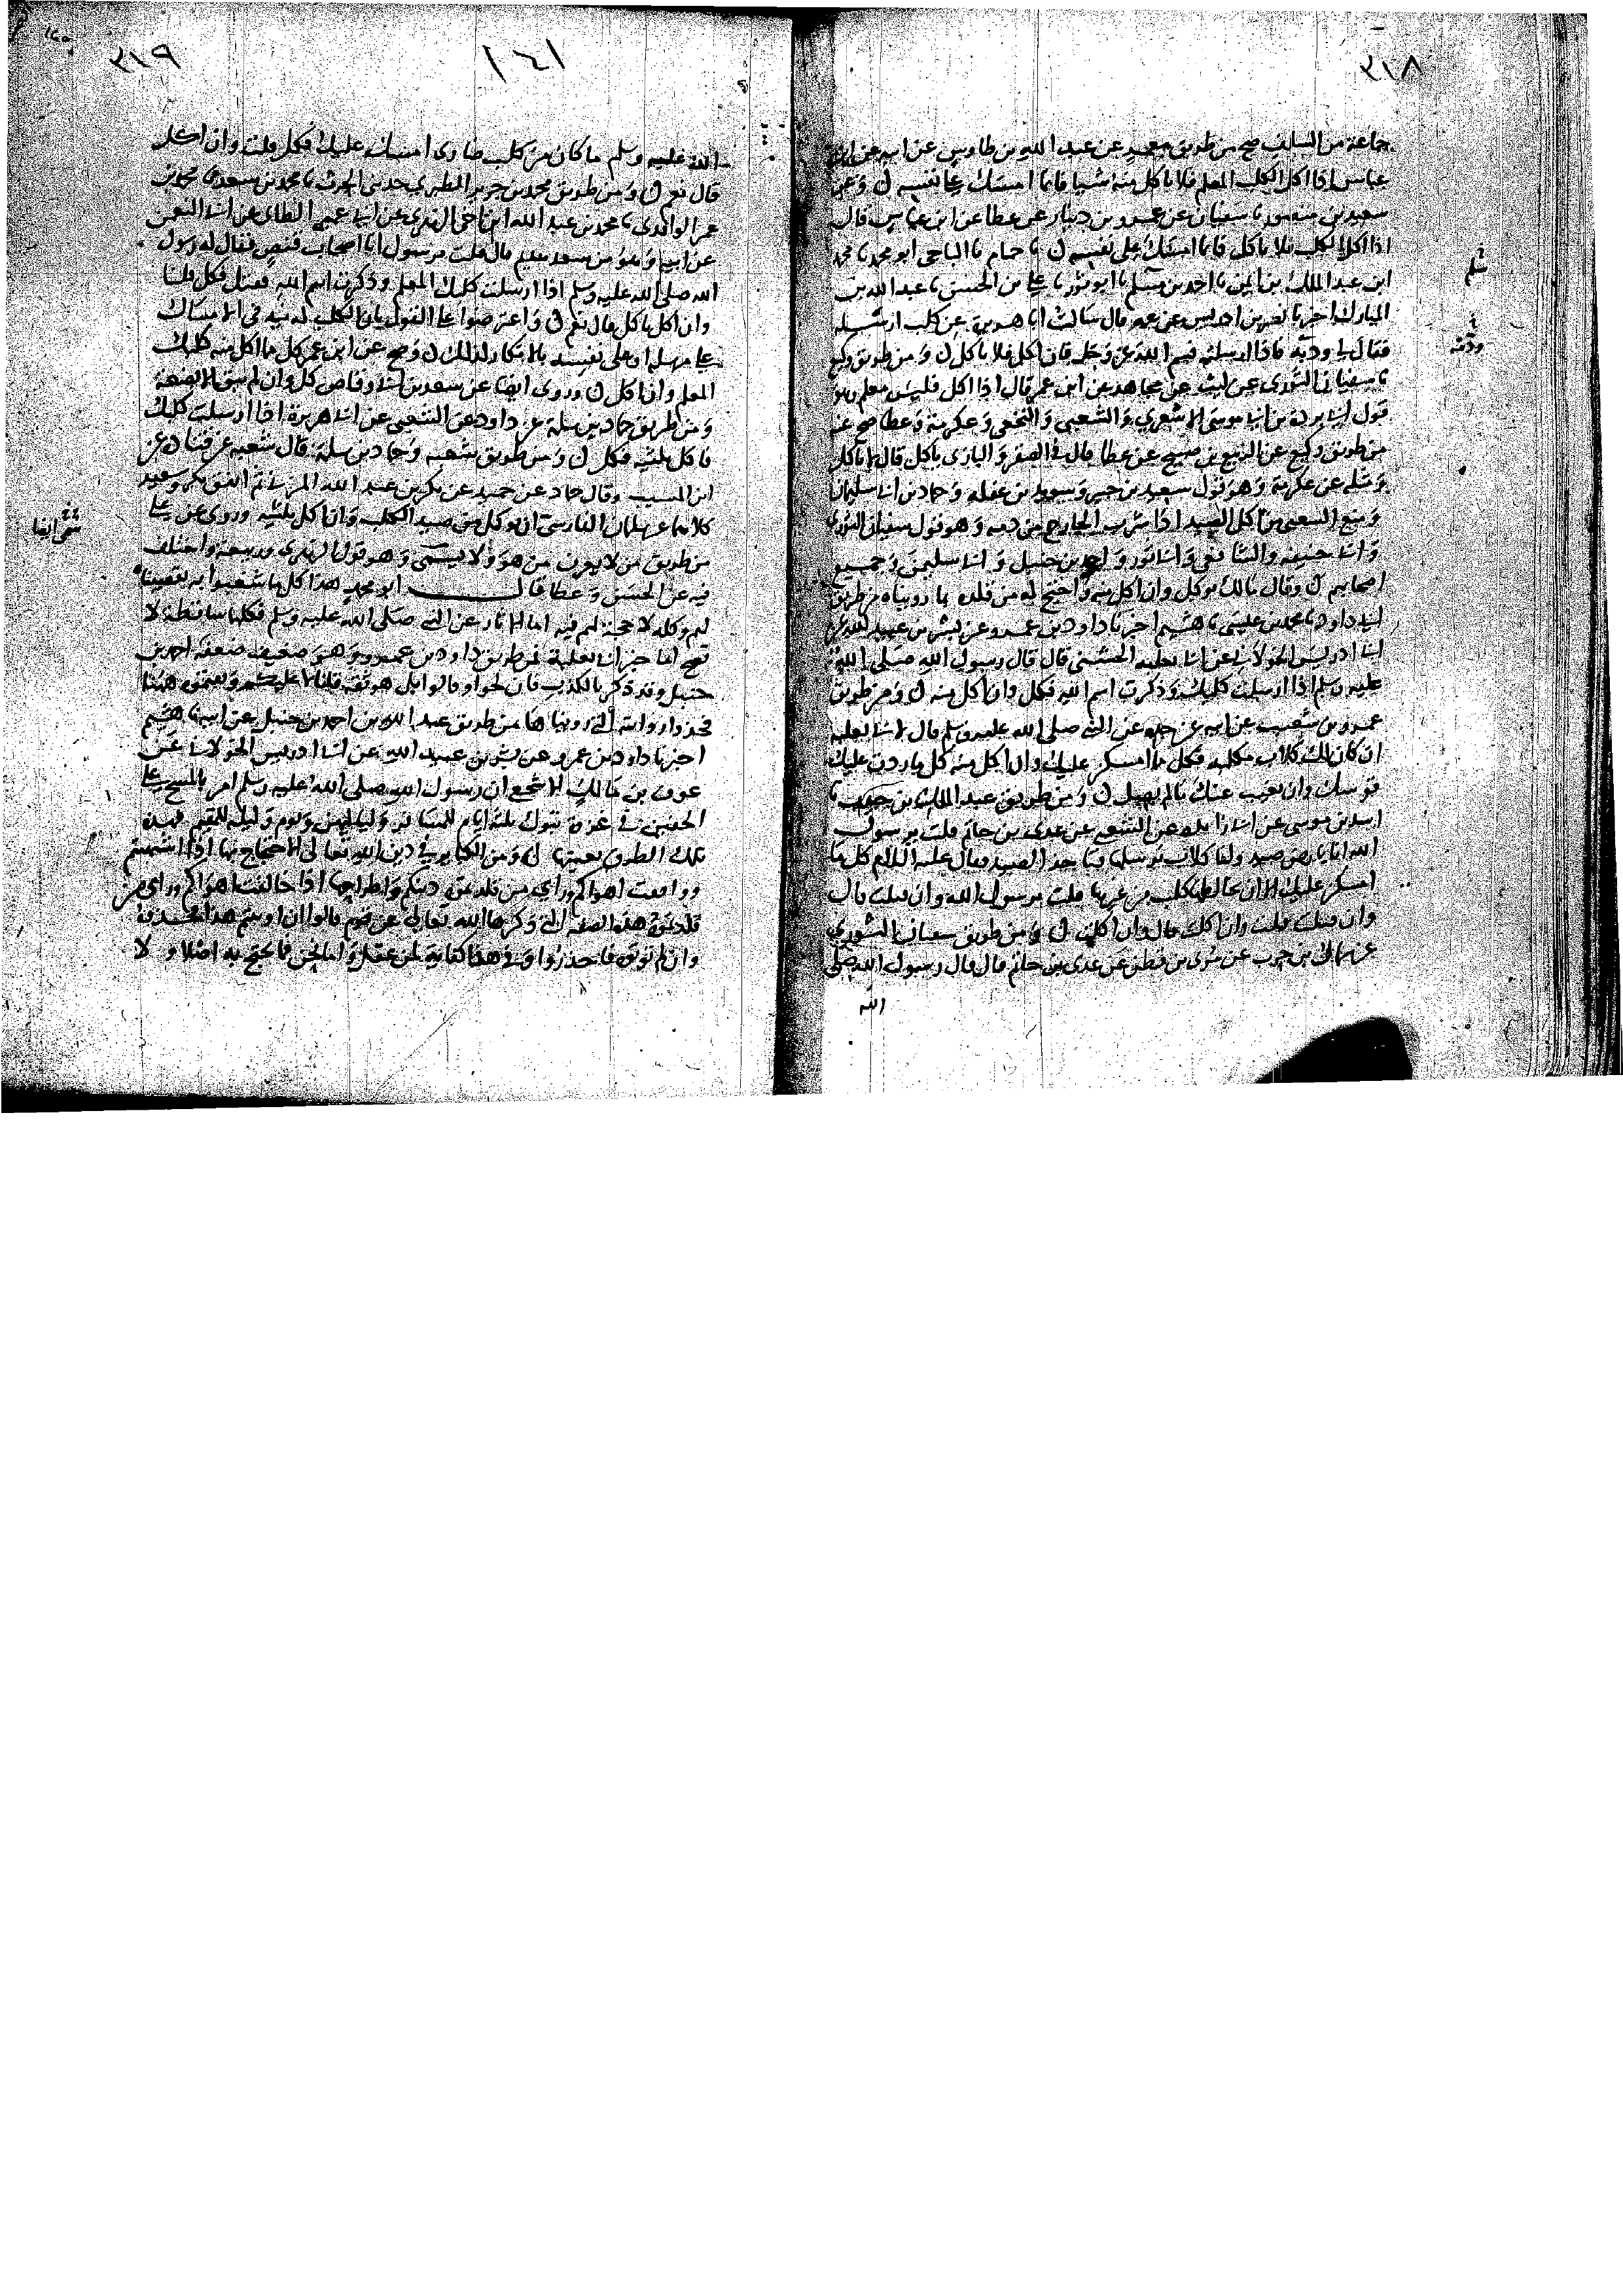 ٣١٨
جماعة من السلف صح من طريق معمر عن عبد الله بن طاوس عن ابيه عن ابن
عباس اذا اكل الكلب المعلم فلا تاكل منه شيا فانما امسك على نفسه ن وعن
سعيد بن منصور نا سفيان عن عمرو بن دينار عن عطا عن ابن عباس قال
اذا اكل الكلب فلا تاكل فانما امسك على نفسه ن نا حمام نا الباجى ابو محمد نا محمد
ابن عبد الملك بن ايمن نا احمد بن مسلم نا ابو ثور نا على بن الحسن نا عبد الله بن
المبارك اخبرنا معمر بن ادريس عن عمه قال سالت ابا هريرة عن كلب ارسله
فقال لى وذمه فاذا ارسلته فسم الله عز وجل فان اكل فلا تاكل ن ومن طريق وكيع
نا سفيان الثورى عن ليث عن مجاهد عن ابن عمر قال اذا اكل فليس معلم وهو
قول ابى بردة بن ابى موسى الاشعري والشعبى والنخعى وعكرمة وعطا صح عنه
من طريق وكيع عن الربيع بن صبيح عن عطا قال فى الصقر والبازى ياكل قال لا تاكل
ومثله عن عكرمة وهو قول سعيد بن جبير وسويد بن غفله وحماد بن ابى سليمان
ومنع الشعبى من اكل الصيد اذا شرب الجارح من دمه وهو قول سفيان الثوري
وابى حنيفه والشافعى وابى ثور واحمد بن حنبل وابى سليمن وجميع
اصحابهم ن وقال مالك يوكل وان اكل منه واحتج له من قلده بما رويناه من طريق
ابى داود نا محمد بن عيسى نا هشيم اخبرنا داود بن عمرو عن بشر بن عبيد الله عن
ابى ادريس الخولانى عن ابى ثعلبه الخشنى قال قال رسول الله صلى الله
عليه وسلم اذا ارسلت كلبك وذكرت اسم الله فكل وان اكل منه ن ومن طريق
عمرو بن شعيب عن ابيه عن جده عن النبى صلى الله عليه وسلم قال لابى ثعلبه
ان كان لك كلاب مكلبه فكل مما امسكن عليك وان اكل منه كل ما ردت عليك
قوسك وان تغيب عنك ما لم يصل ن ومن طريق عبد الملك بن حبيب نا
اسد بن موسى عن ابن ابى زائده عن الشعبى عن عدى بن حاتم قلت يرسول
الله انا بارض صيد ولنا كلاب نرسلها فتاخذ الصيد فقال عليه السلام كل ما
امسكن عليك الا ان يخالطها كلب من غيرها قلت يرسول الله وان قتلت قال
وان قتلت قلت وان اكلت قال وان اكلت ن ومن طريق سفيان الثوري
عن سماك بن حرب عن مرى بن قطرى عن عدى بن حاتم قال قال رسول الله صلى
الله
مسلم
وذمه
٣١٩
١٤١
الله عليه وسلم ما كان من كلب ضارى امسك عليك فكل قلت وان اكل
قال نعم ن ومن طريق محمد بن جرير الطبرى حدثنى الحرث نا محمد بن سعد نا محمد بن
عمر الواقدى نا محمد بن عبد الله ابن اخى الزهرى عن ابى عمير الطائى عن ابى النعمن
عن ابيه وهو من سعد هذيم قال قلت يرسول الله انا اصحاب قنص فقال له رسول
الله صلى الله عليه وسلم اذا ارسلت كلبك المعلم وذكرت اسم الله فقتل فكل قلنا
وان اكل ناكل قال نعم ن واعترضوا على القول بان الكلب له نيه فى الامساك
على مرسله او على نفسه بالانكار لذلك ن وصح عن ابن عمر كل مما اكل منه كلبك
المعلم وان اكل ن وروى ايضا عن سعد بن ابى وقاص كل وان لم يبق الا بضعة
ومن طريق حماد بن سلمة عن داود عن الشعبى عن ابى هريرة اذا ارسلت كلبك
فاكل ثلثيه فكل ن ومن طريق شعبه وحماد بن سلمة قال شعبه عن قتادة عن
ابن المسيب وقال حماد عن حميد عن بكر بن عبد الله المزنى ثم اتفق بكر وسعيد
كلاهما عن سلمان الفارسى ان يوكل من صيد الكلب وان اكل ثلثيه وروى عن على
من طريق من لا يعرف من هو ولا يسمى وهو قول الزهرى وربيعة واختلف
فيه عن الحسن وعطا قال ابو محمد هذا كل ما شغبوا به
لهم وكله لا حجة لهم فيه اما الاثار عن النبى صلى الله عليه وسلم فكلها ساقطة لا
تصح اما خبر ابى ثعلبة فمن طريق داود بن عمرو وهو ضعيف ضعفه احمد بن
حنبل وقد ذكر بالكذب فان لجوا وقالوا بل هو ثقة قلنا لا عليكم
فخذوا روايته التى رويناها من طريق عبد الله بن احمد بن حنبل عن ابيه نا هشيم
اخبرنا داود بن عمرو عن بشر بن عبيد الله عن ابى ادريس الخولانى عن
عوف بن مالك الاشجعى ان رسول الله صلى الله عليه وسلم امر بالمسح على
الخفين فى غزوة تبوك ثلثة ايام للمسافر ولياليهن ويوم وليله للمقيم فهذه
تلك الطريق بعينها ن ومن الكباير فى دين الله تعالى الاحتجاج بها اذا اشتهيتم
ووافقت اهواكم وراى من قلدتموه دينكم واطراحها اذا خالفت اهواكم وراى من
قلدتموه هذه الصفه التى ذكرها الله تعالى عن قوم قالوا ان اوتيتم هذا فخذوه
وان لم توتوه فاحذروا وفى هذا كفاية لمن عقل واما نحن فلا نحتج به اصلا ولا
ايضا